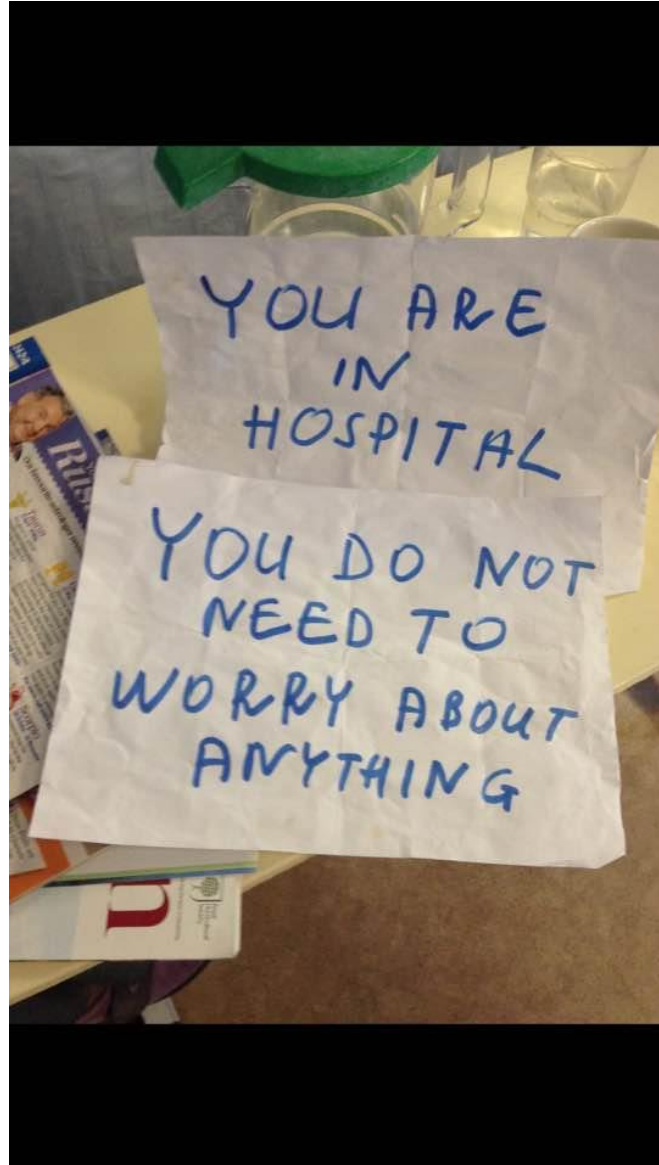 YOU ARE
IN
HOSPITAL
YOU DO NOT
NEED TO
WORRY ABOUT
ANYTHING
Rus
n